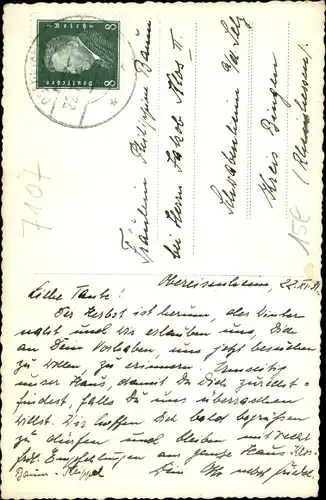 Deutsches
Reich
8 8
Fräulein Philippine Baum
bei Herrn Jakob Klos II.
Schwabenheim a/d Selz
Kreis Bingen
(Rheinhessen).
7107
15€
22.XI.31.
Liebe Tante!
Der Herbst ist herum, der Winter
naht und wir erlauben uns, Dich
an Dein Vorhaben, uns jetzt besuchen
zu wollen, zu erinnern. Umseitig
unser Haus, damit Du Dich zurecht-
findest, falls Du uns überraschen
willst. Wir hoffen Dich bald begrüßen
zu dürfen und bleiben mit recht
Empfehlungen am ganze Haus Klos-
Baum-
Dein Otto nebst